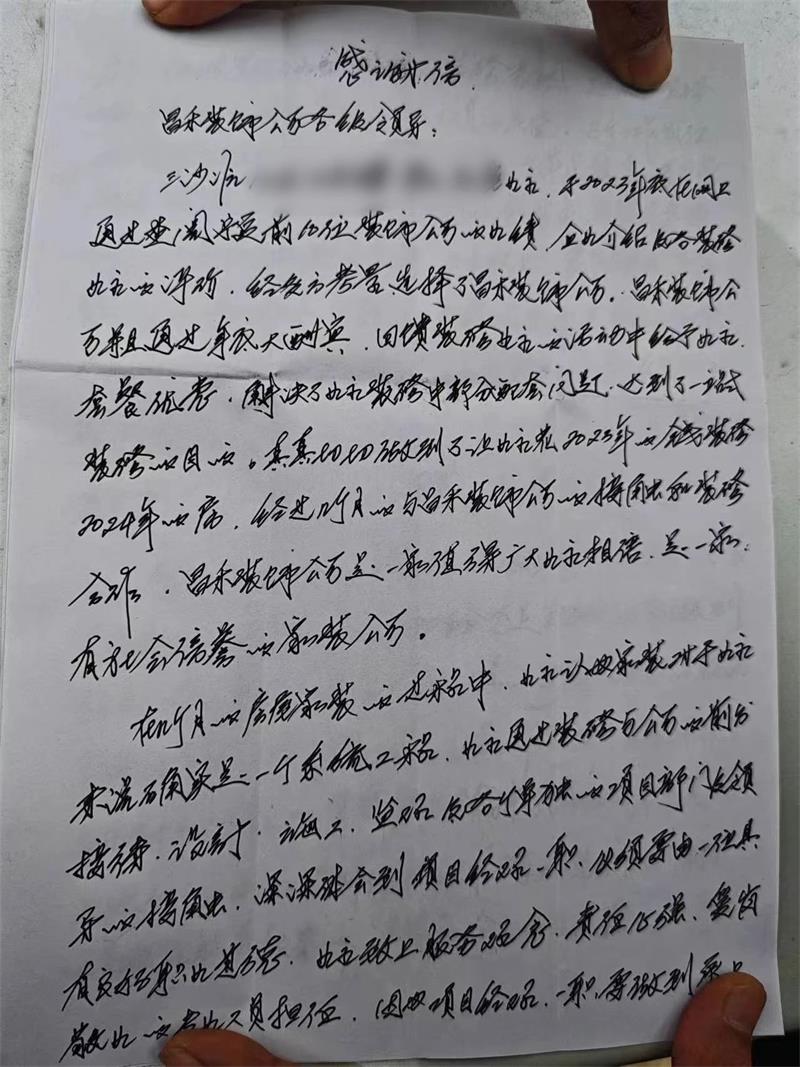 感谢信
昌禾装饰公司各级领导：
三沙源 业主，于2023年底在网上
通过查阅 前10位装饰公司的业绩，企业介绍及各装修
业主的评价，经多方考量选择了昌禾装饰公司。昌禾装饰公
司并且通过年底大酬宾，回馈装修业主的活动中给予业主
套餐优惠，解决了业主装修中部分配套问题，达到了一站式
装修的目的。真真切切做到了让业主花2023年的钱装修
2024年的房，经过几个月的与昌禾装饰公司的接触和装修
合作，昌禾装饰公司是一家值得广大业主相信，是一家
有社会信誉的家装公司。
在几个月的房屋家装的过程中，业主认为家装对于业主
来说确实是一个系统工程，业主通过装修与公司的前台
接待，设计，施工，监理及各个单独的项目部门及领
导的接触，深深体会到项目经理一职，必须要由一位具
有良好职业道德，业主至上服务理念，责任心强，爱岗
敬业的专业人员担任，因为项目经理一职要做到承上